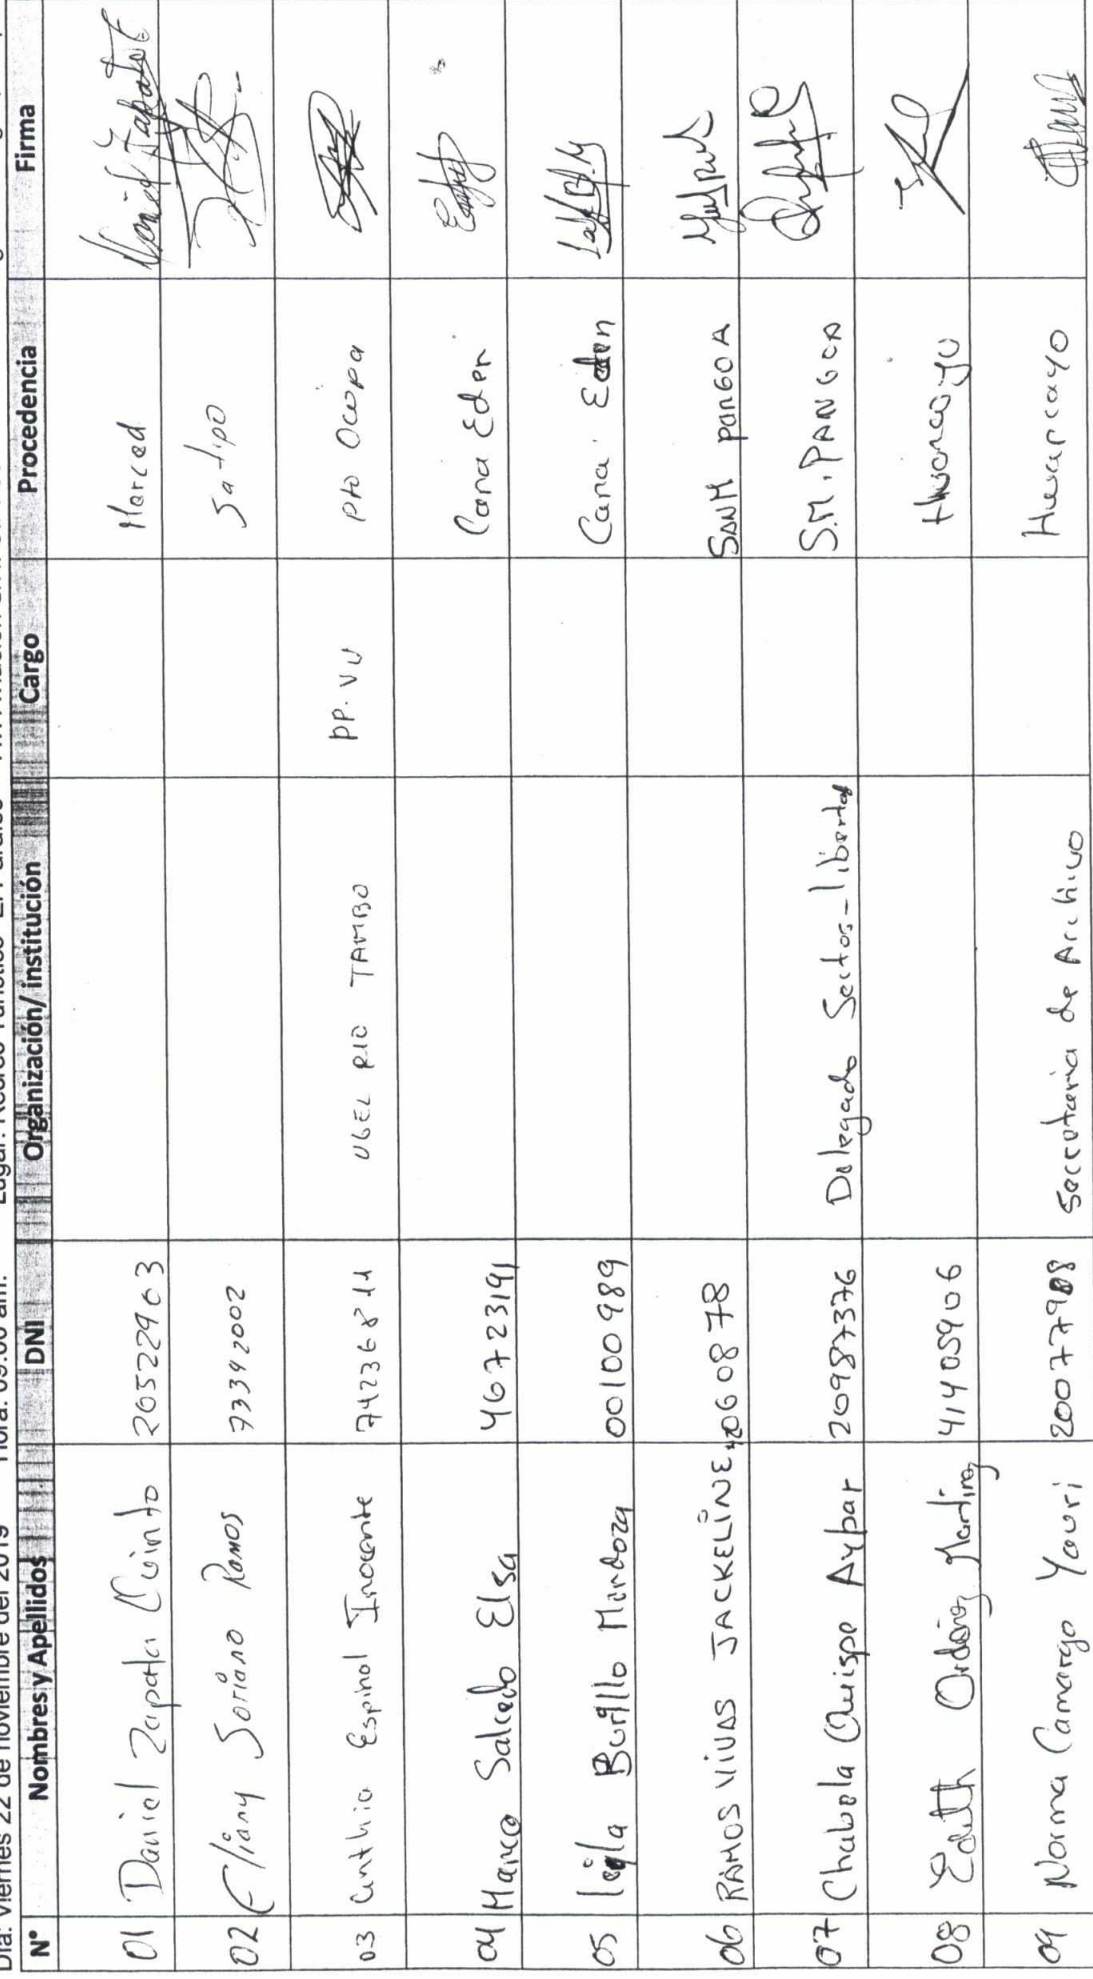 Día: Viernes 22 de noviembre del 2019 Hora: 09:00 am. Lugar: Recreo Turístico
N° Nombres y Apellidos DNI Organización/ institución Cargo Procedencia Firma
01 Daniel Zapata Quinto 20522903 Merced
02 Eliany Soriano Ramos 73342002 Satipo
03 Cinthia Espinal Inocente 74236811 UGEL RIO TAMBO PP. VU Pto Ocopa
04 Marco Salcedo Elsa 46723191 Cana Eden
05 Burillo Mendoza 00100989 Cana Eden
06 RAMOS VIVAS JACKELINE 40608878 SAN M PANGOA
07 Chabela Quispe Aybar 20987376 Delegado Sectos-libertad S.M. PANGOA
08 Edith Ordoñez Martinez 41405906 Huancayo
09 Norma Camargo Yauri Secretaria de Archivo Huancayo